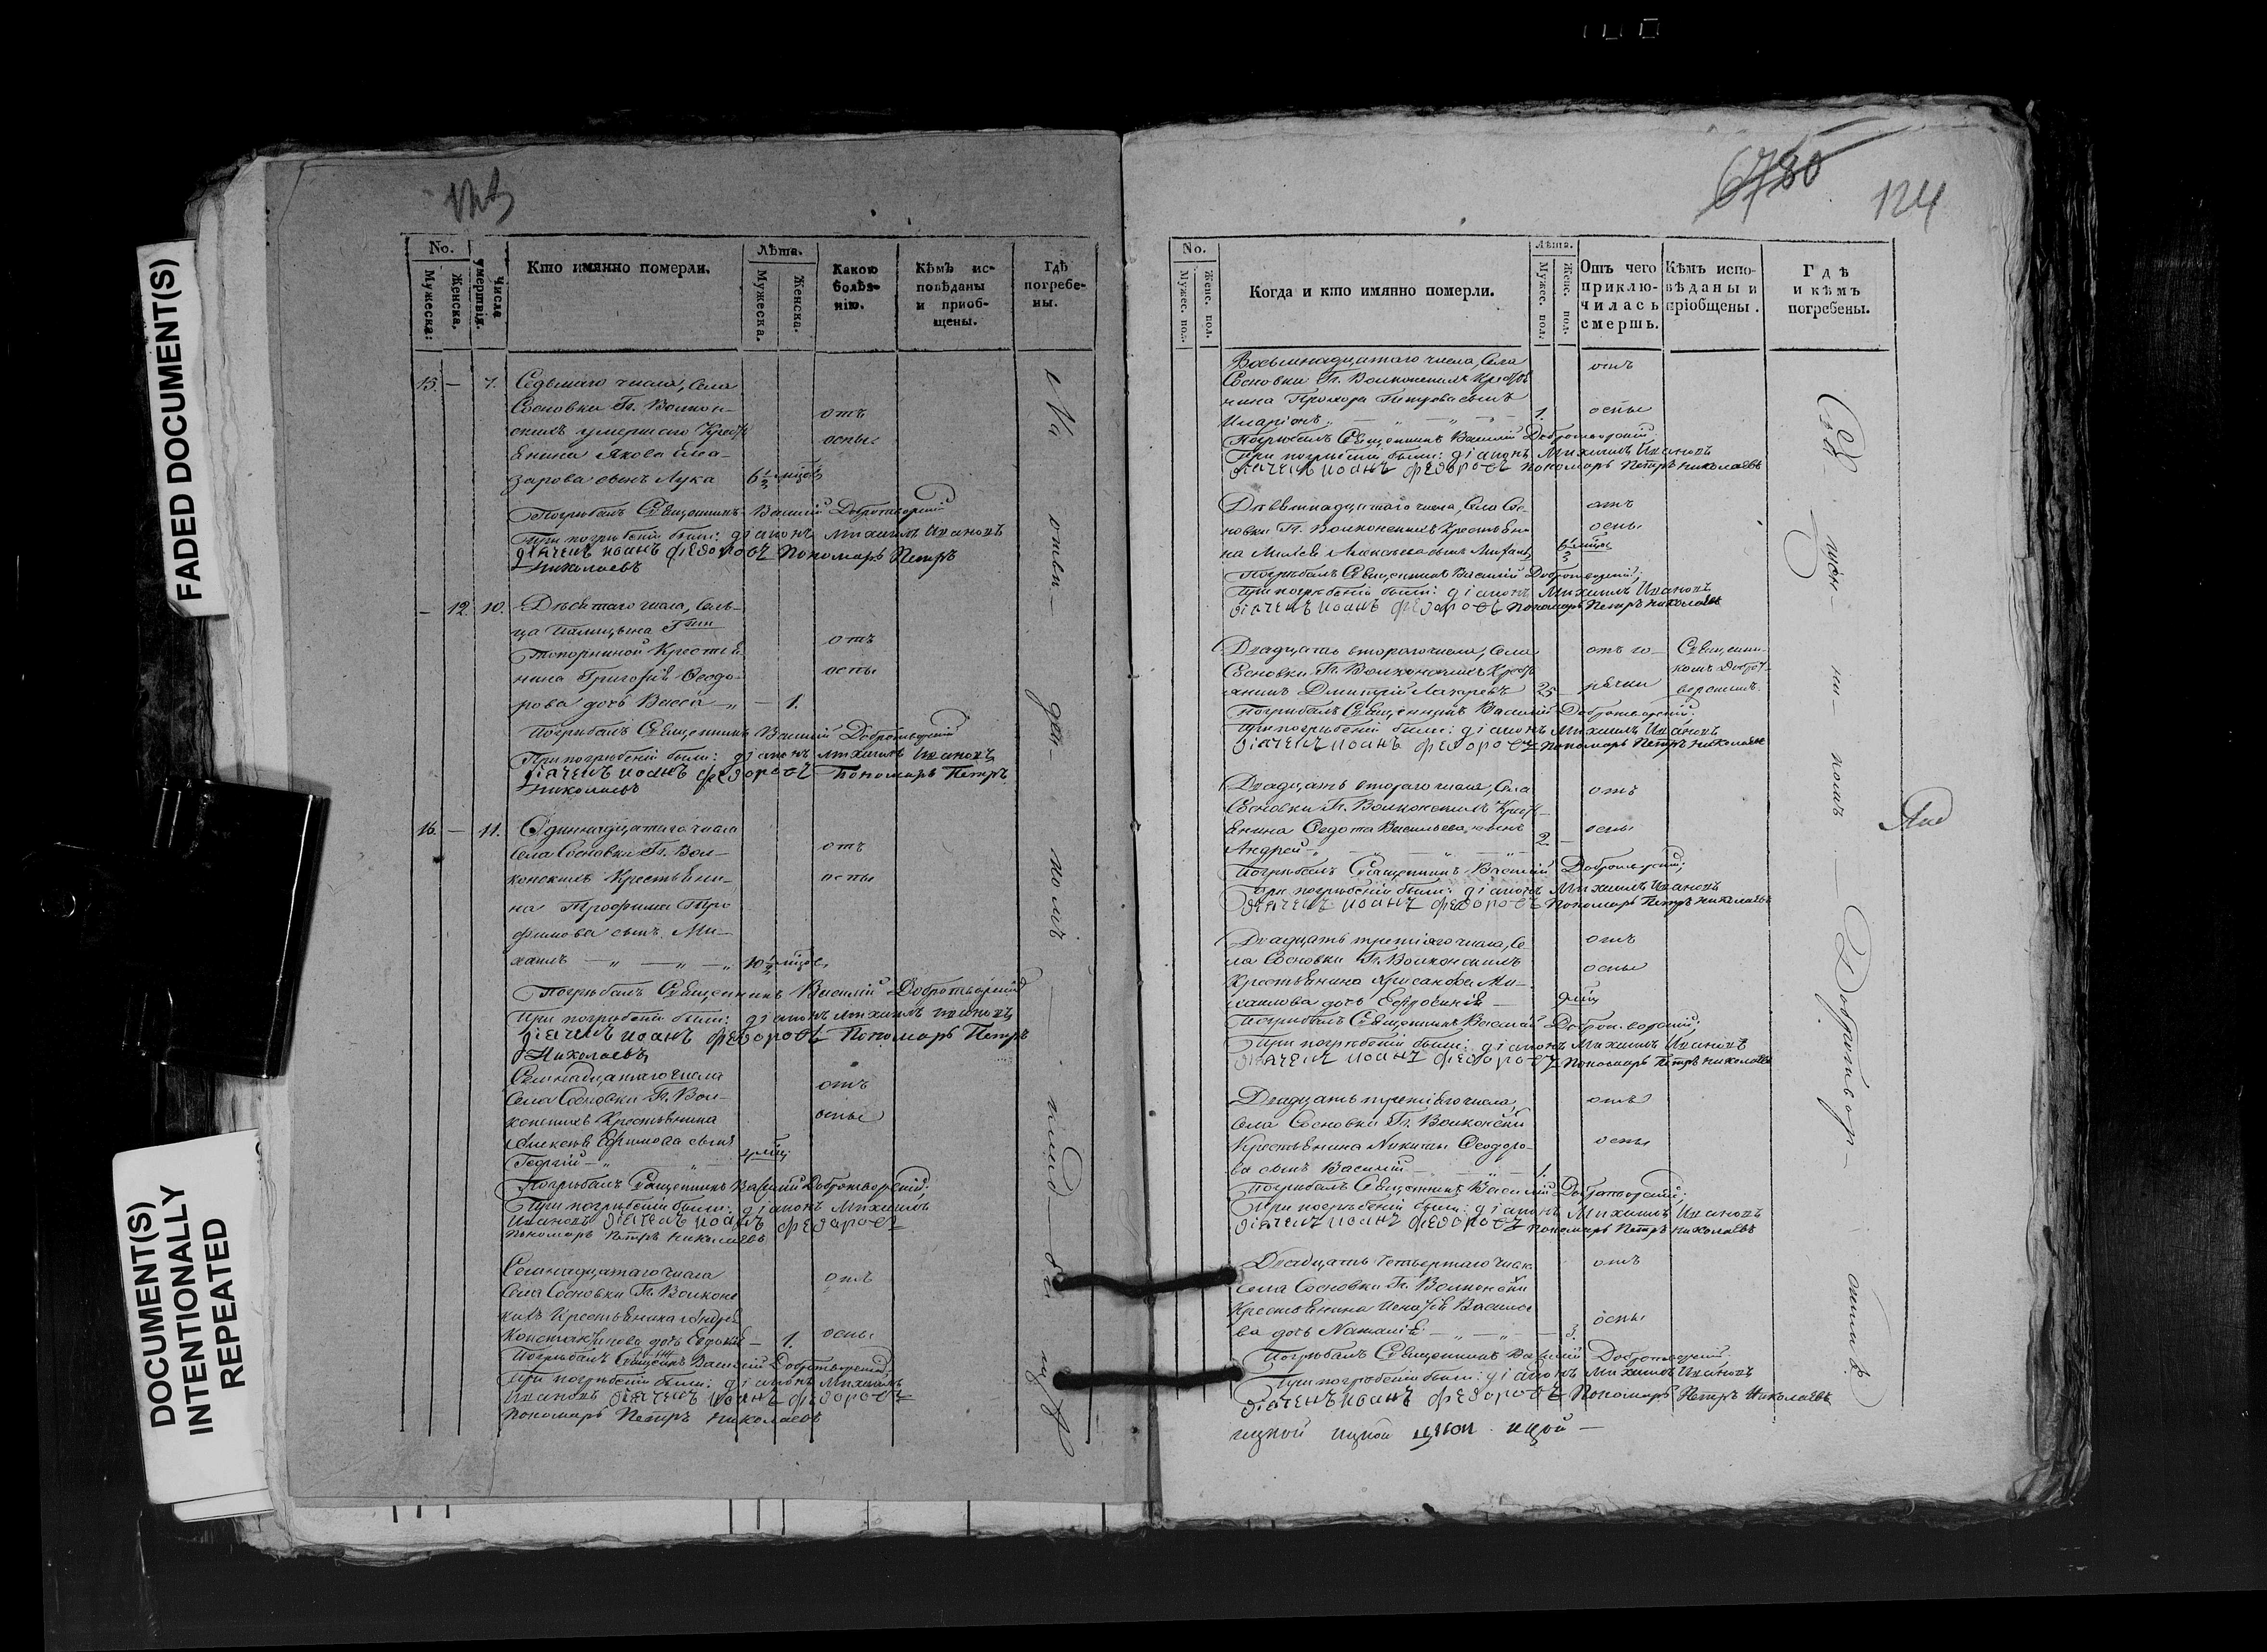 FADED DOCUMENT(S)
DOCUMENT(S)
INTENTIONALLY
REPEATED
No.
Мужеска:
Женска,
Числа
умертвія.
Кто имянно померли.
Лѣта.
Мужеска.
Женска.
Какою
болѣз-
нію.
Кѣмъ ис-
повѣданы
и приоб-
щены.
Гдѣ
погребе-
ны.
15. — 7. Седьмаго числа, Села
Сосновки Гг. Волкон-
скихъ умершаго Кресть
янина Якова
сынъ Лука 6 1/2 мцовъ
отъ
оспы
Погребалъ Священникъ Василій Добротворскій
При погребеніи были: діаконъ Михаилъ Ивановъ
діачекъ иоанъ федоровъ Пономарь Петръ
Николаевъ
— 12. 10. Десятаго числа, Сель-
ца
Топорниной Крестья
нина Григорія Ѳеодо-
рова дочь Васса — „ — 1.
отъ
оспы
Погребалъ Священникъ Василій Добротворскій
При погребеніи были: діаконъ Михаилъ Ивановъ
діачекъ иоанъ федоровъ Пономарь Петръ
Николаевъ
16. — 11. Одиннадцатаго числа
Села Сосновки Гг. Вол-
конскихъ Крестьяни-
на Трофима Тро
фимова сынъ Ми-
хаилъ — „ — „ — „ 10 1/2 мцов,
отъ
оспы
Погребалъ Священникъ Василій Добротворскій
При погребеніи были: діаконъ Михаилъ Ивановъ
діачекъ иоанъ федоровъ Пономарь Петръ
Николаевъ
Семнадцатаго числа
Села Сосновки Гг. Вол-
конскихъ Крестьянина
Алексѣя Ефимова сынъ
Георгій — „
отъ
оспы
Погребалъ Священникъ Василій Добротворскій;
При погребеніи были: діаконъ Михаилъ
Ивановъ діачекъ иоанъ федоровъ
Пономарь Петръ Николаевъ
Семнадцатаго числа
Села Сосновки Гг. Волконс
кихъ Крестьянина Андрея
Константинова дочь Евдокія — 1.
отъ
оспы
Погребалъ Священникъ Василій Добротворскій
При погребеніи были: діаконъ Михаилъ
Ивановъ діачекъ иоанъ федоровъ
Пономарь Петръ Николаевъ
6780
124
No.
Мужес. пол.
Женс. пол.
Когда и кто имянно померли.
Лѣта.
Мужес. пол.
Женс. пол.
Отъ чего
приклю-
чилась
смерть.
Кѣмъ испо-
вѣданы и
пріобщены.
Гдѣ
и кѣмъ
погребены.
Восьмнадцатаго числа, Села
Сосновки Гг. Волконскихъ Крестья
нина Прохора Петрова сынъ
Иларіонъ „ — „ — „ — 1.
отъ
оспы
Погребалъ Священникъ Василій Добротворскій
При погребеніи были: діаконъ Михаилъ Ивановъ
діачекъ иоанъ федоровъ пономарь Петръ Николаевъ
Девятнадцатаго числа, Села Сос-
новки Гг. Волконскихъ Крестьяни
на
отъ
оспы
Погребалъ Священникъ Василій Добротворскій;
При погребеніи были: діаконъ Михаилъ Ивановъ
діачекъ иоанъ федоровъ Пономарь Петръ Николаевъ
Двадцать втораго числа, Села
Сосновки Гг. Волконскихъ Кресть
янинъ Дмитрій Лазаревъ 25 —
отъ го-
рячки
Священни-
комъ Доброт-
ворскимъ.
Погребалъ Священникъ Василій Добротворскій.
При погребеніи были: діаконъ Михаилъ Ивановъ
діачекъ иоанъ федоровъ Пономарь Петръ Николаевъ
Двадцать втораго числа, Села
Сосновки Гг. Волконскихъ Кресть-
янина Ѳедота Васильева сынъ
Андрей — „ — „ — „ — 2. —
отъ
оспы
Погребалъ Священникъ Василій Добротворскій;
При погребеніи были: діаконъ Михаилъ Ивановъ
діачекъ иоанъ федоровъ Пономарь Петръ Николаевъ
Двадцать третіяго числа, Се
ла Сосновки Гг. Волконскихъ
Крестьянина Хрисанфа Ми-
хаилова дочь Евфросинія —
отъ
оспы
Погребалъ Священникъ Василій Добротворскій;
При погребеніи были: діаконъ Михаилъ Ивановъ
діачекъ иоанъ федоровъ Пономарь Петръ Николаевъ
Двадцать третіяго числа
Села Сосновки Гг. Волконски
Крестьянина Никиты Ѳеодоро-
ва сынъ Василій — „ — 1.
отъ
оспы
Погребалъ Священникъ Василій Добротворскій;
При погребеніи были: діаконъ Михаилъ Ивановъ
діачекъ иоанъ федоровъ Пономарь Петръ Николаевъ
Двадцать четвертаго числ
Села Сосновки Гг. Волконски
Крестьянина Игнатія Василье
ва дочь Наталія — „ — „ — 3.
отъ
оспы
Погребалъ Священникъ Василій Добротворскій.
При погребеніи были: діаконъ Михаилъ Ивановъ
діачекъ иоанъ федоровъ Пономарь Петръ Николаевъ